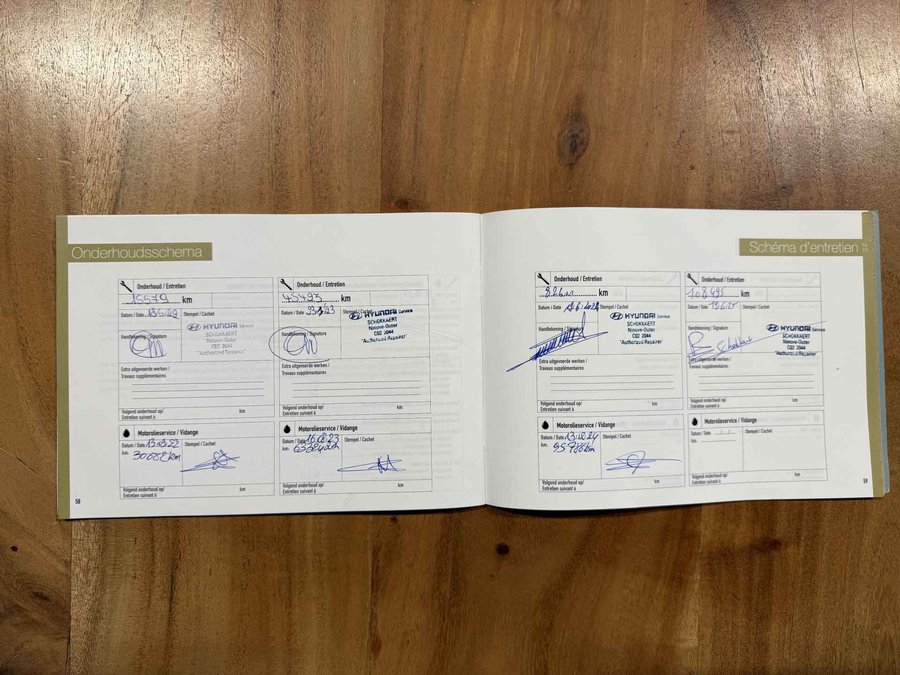 Onderhoudsschema
Onderhoud / Entretien
15579 km
Datum / Date 18.5.22 Stempel / Cachet
Handtekening / Signature
HYUNDAI Service
SCHEKKAERT
Ninove-Outer
CB2 2044
"Authorized Repairer"
Extra uitgevoerde werken /
Travaux supplémentaires
Volgend onderhoud op/ km
Entretien suivant à
Onderhoud / Entretien
45493 km
Datum / Date Stempel / Cachet
Handtekening / Signature
HYUNDAI Service
SCHEKKAERT
Ninove-Outer
CB2 2044
"Authorized Repairer"
Extra uitgevoerde werken /
Travaux supplémentaires
Volgend onderhoud op/ km
Entretien suivant à
Motorolieservice / Vidange
Datum / Date Stempel / Cachet
km 30682 km
Volgend onderhoud op/ km
Entretien suivant à
Motorolieservice / Vidange
Datum / Date Stempel / Cachet
km
Volgend onderhoud op/ km
Entretien suivant à
58
Schéma d'entretien
Onderhoud / Entretien
km
Datum / Date Stempel / Cachet
Handtekening / Signature
HYUNDAI Service
SCHEKKAERT
Ninove-Outer
CB2 2044
"Authorized Repairer"
Extra uitgevoerde werken /
Travaux supplémentaires
Volgend onderhoud op/ km
Entretien suivant à
Onderhoud / Entretien
108495 km
Datum / Date 13.6.25 Stempel / Cachet
Handtekening / Signature
HYUNDAI Service
SCHEKKAERT
Ninove-Outer
CB2 2044
"Authorized Repairer"
Extra uitgevoerde werken /
Travaux supplémentaires
Volgend onderhoud op/ km
Entretien suivant à
Motorolieservice / Vidange
Datum / Date Stempel / Cachet
km 95788 km
Volgend onderhoud op/ km
Entretien suivant à
Motorolieservice / Vidange
Datum / Date Stempel / Cachet
km
Volgend onderhoud op/ km
Entretien suivant à
59